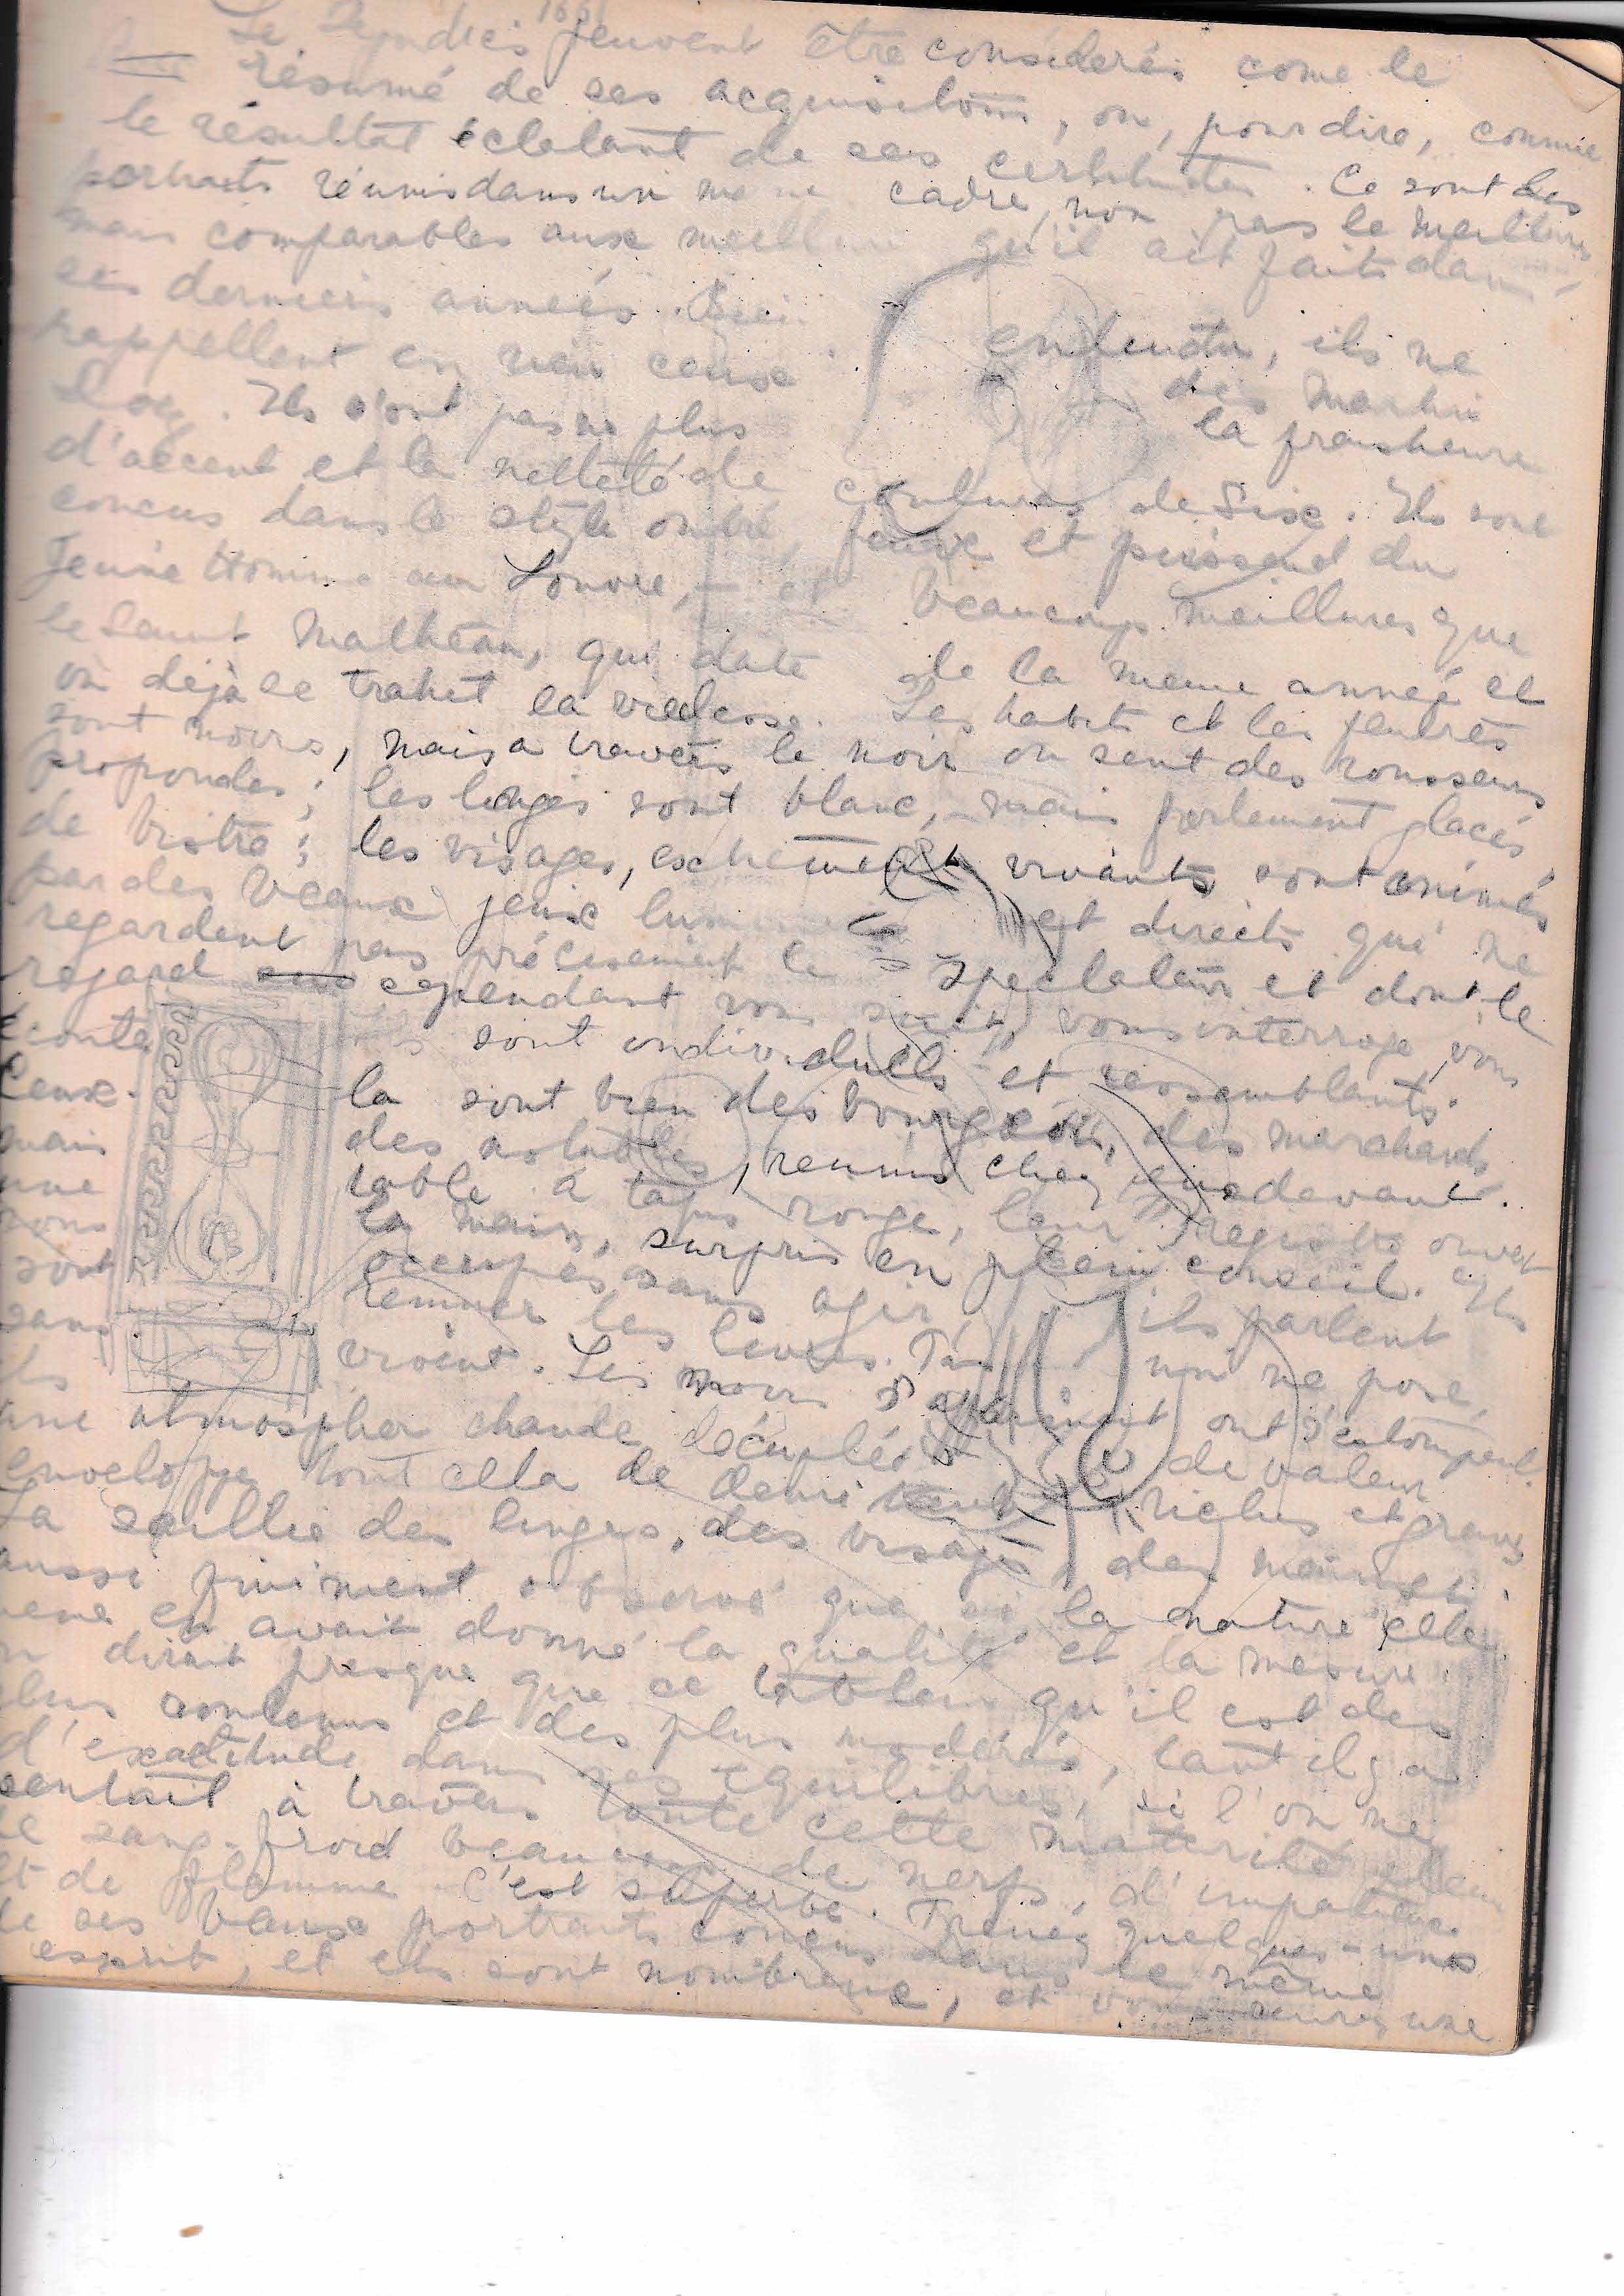 1661
Le Syndics peuvent être considerés come le
résumé de ses acquisitions, ou, pour dire, comme
le résultat éclatant de ses certitudes. Ce sont des
portraits réunis dans un même cadre, non pas le meilleurs
mais comparables aux meilleurs qu'il ait faits dans
ses derniers années. entendu, ils ne
rappellent en rien ceux des Martin
Daey. Ils n'ont pas no plus la fraicheur
d'accent et la netteté de couleurs de Six. Ils sont
concus dans le style ombré, fauve et puissant du
Jeune Homme au Louvre, — et beaucoup meillures que
le Saint Mathéau, qui date de la meme anneé et
où déjà se trahit la viellesse. Les habits et les feutres
sont noirs, mais a travers le noir on sent des rousseurs
profondes; les linges sont blanc, mais fortement glacés
de bistre; les visages, exchêmement vivants sont animés
par des beaux yeux lum et directs qui ne
regardent pas précisement le spectateur et dont le
regard cependant vous suit, vous interroge, vous
écoute sont individuels et ressemblants.
Ceux- la sont bien des bourgeois, des marchands
mais des notables, reunis chez eux devant
une table à tapis rouge, leur registre ouvert
sous la main, surpris en plein conseil. Ils
sont occupés sans agir, ils parlent
sans remuer les levres. Pas un ne pose,
ils vivent. Les noirs s'affirment ont s'estompent.
une atmospher chaude décuplée de valeur
enveloppe tout cela de demi teints riches et graves
La saillie des linges, des visages, des mains est
aussi finiment observé que si la nature elle
meme en avait donné la qualité et la mesure.
n dirait presque que ce tableau qu'il est des
plus contenus et des plus modérés, tant il y a
d'exactitude dans ses équilibres, si l'on ne
sentait à travers toute cette maturité plein
de sang-froid beaucoup de nerfs, d'impatience
et de flamme. C'est superbe. Prenez quelques-uns
de ses beaux portraits concus dans le même
esprit, et els sont nombreux, et vous aurez une